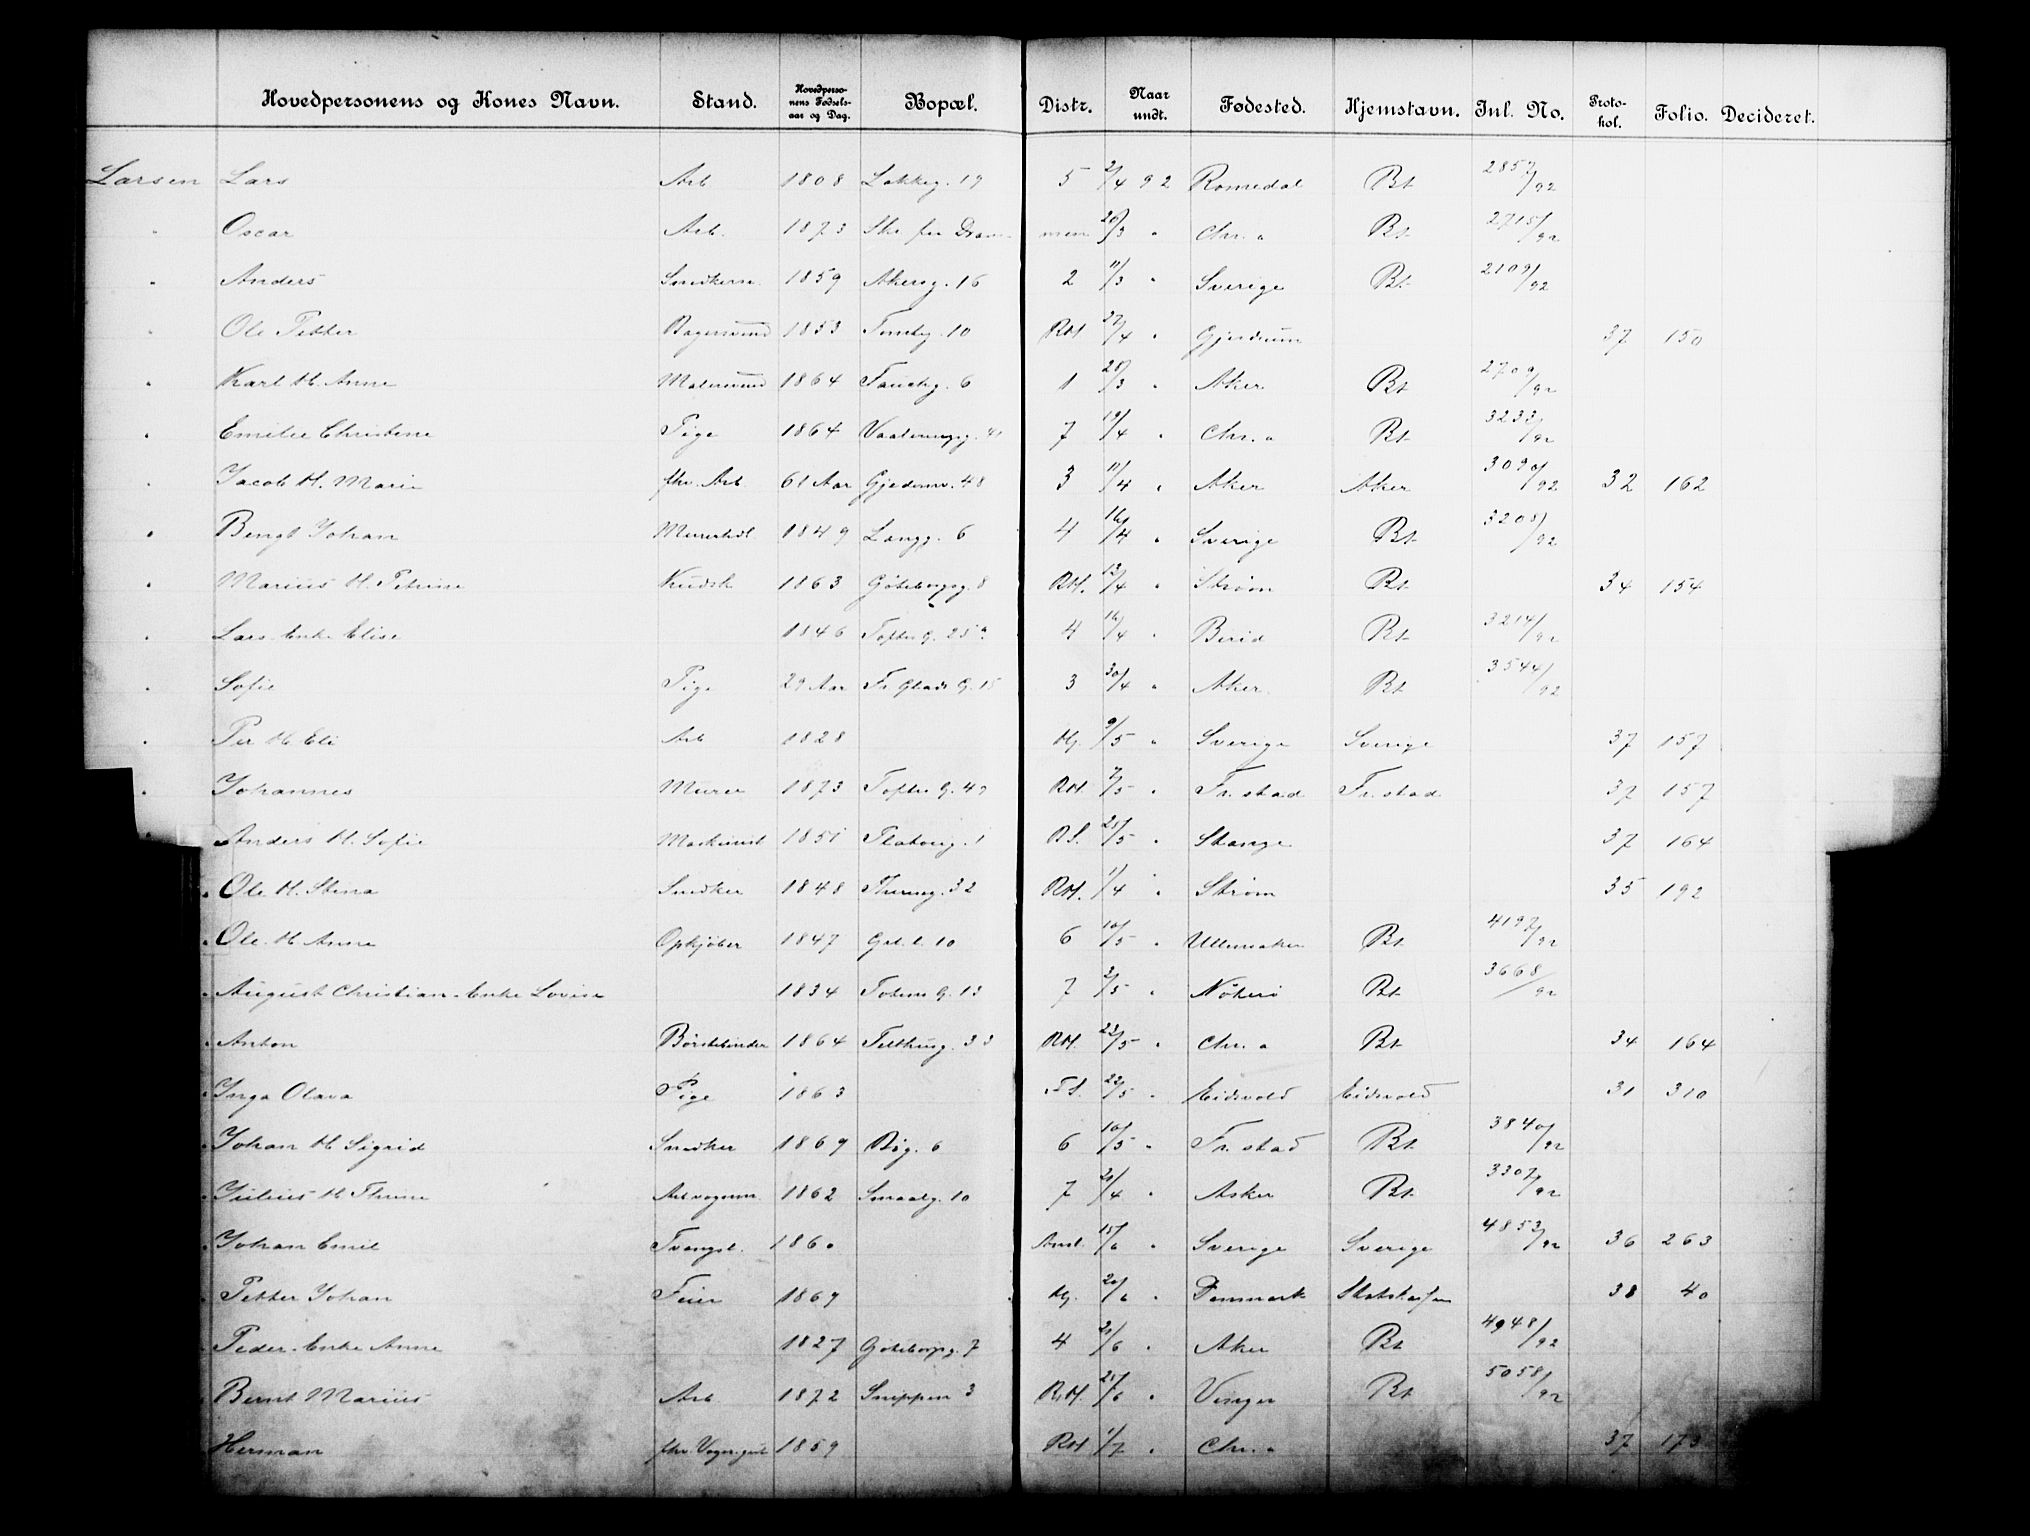 Hovedpersonens og Kones Navn. Stand. Hovedpersonens Fødselsaar og Dag. Bopæl. Distr. Naar undt. Fødested. Hjemstavn. Inl. No. Protokol. Folio. Decideret.
Larsen Lars Arb 1808 Lakkeg. 19 5 2/4 92 Romedal Bt 2857/92
" Oscar Arb. 1873 Str. fra Drammen 26/3 " Chr.a Bt 2715/92
" Anders Snedkersv. 1859 Akersg. 16 2 11/3 " Sverige Bt 2109/92
" Ole Petter Bagersvend 1853 Tomteg. 10 RH 27/4 " Gjerdrum 37 150
" Karl H. Anne Malersvend 1864 Fauchg. 6 1 28/3 " Aker Bt 2709/92
" Emilie Christine Pige 1864 Vaalerengg. 41 7 19/4 " Chr.a Bt 3233/92
" Jacob H. Marie fhv. Arb. 61 Aar Gjedemv. 48 3 11/4 " Aker Aker 3090/92 32 162
" Bengt Johan Murerhdl. 1849 Langg. 6 4 16/4 " Sverige Bt 3208/92
" Marius H. Petrine Kudsk 1863 Göteborgg. 8 RH. 12/4 " Strøm Bt 34 154
" Lars Enke Elise 1846 Toftes G. 25a 4 16/4 " Birid Bt 3214/92
" Sofie Pige 29 Aar Fr. Glads G. 15 3 30/4 " Aker Bt 3544/92
" Per H. Eli Arb 1828 Hj. 9/5 " Sverige Sverige 37 157
" Johannes Murer 1873 Toftes G. 49 RH. 7/5 " Fr.stad Fr.stad 37 157
" Anders H. Sofie Maskinist 1851 Platoug. 1 RS. 25/5 " Stange 37 164
" Ole H. Stina Snedker 1848 Thereseg. 32 RH. 1/4 " Strøm 35 192
" Ole H. Anne Opkjøber 1847 Grl. l. 10 6 10/5 " Ullensaker Bt 4197/92
" August Christian. Enke Lovise 1834 Totens G. 13 7 2/5 " Nöterö Bt 3668/92
" Anton Børstebinder 1864 Telthusg. 33 RH. 23/5 " Chr.a Bt 34 164
" Inga Olava Pige 1863 FS. 22/5 " Eidsvold Eidsvold 31 310
" Johan H Sigrid Snedker 1869 Bóg. 6 6 10/5 " Fr.stad Bt 3840/92
" Julius H Thrine Arb vognm. 1862 Smaalg. 10 7 21/4 " Asker Bt 3307/92
" Johan Emil Tvangsl. 1860 Anst. 15/6 " Sverige Sverige 4853/92 36 263
" Petter Johan Feier 1869 Hj. 20/6 " Danmark Statskassen 38 40
" Peder. Enke Anne 1827 Göteborgg. 7 4 21/6 " Aker Bt 4948/92
" Bernt Marius Arb 1872 Snippen 3 RH. 25/6 " Vinger Bt 5058/92
Herman fhv. Vogngut 1859 RH 1/7 " Chr.a 37 173